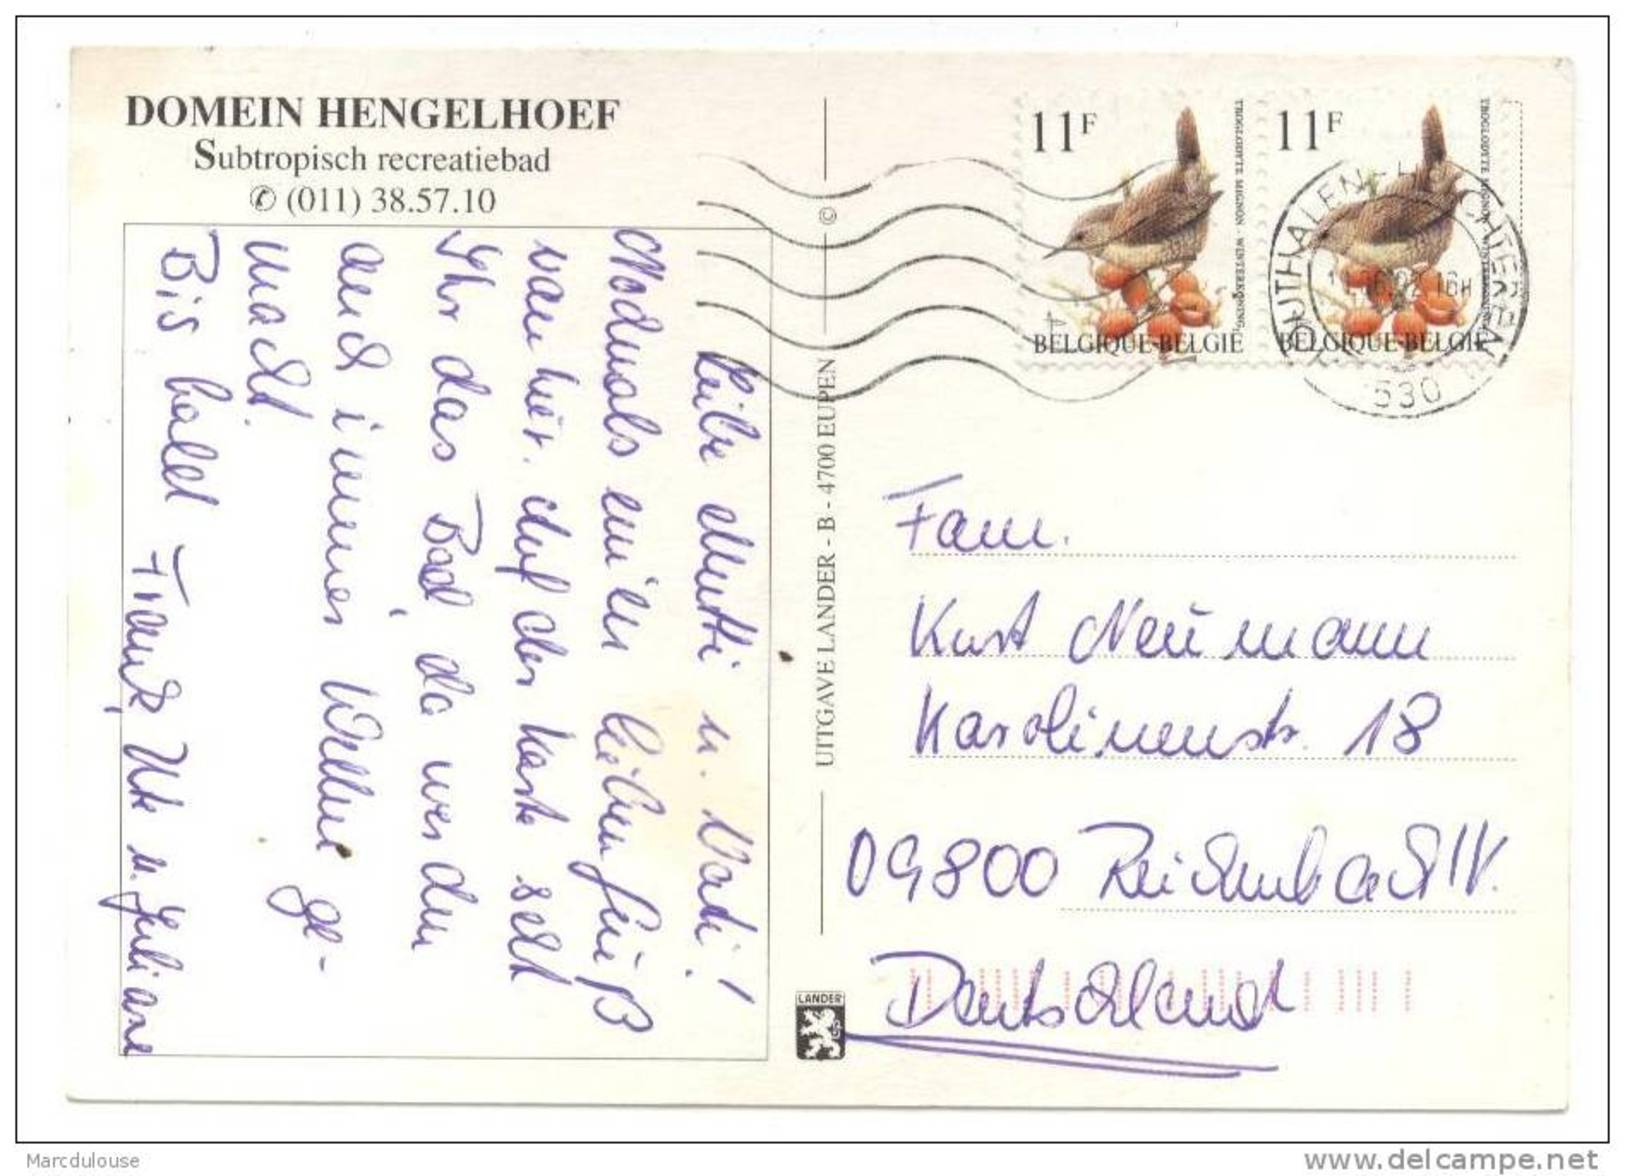 DOMEIN HENGELHOEF
Subtropisch recreatiebad
✆ (011) 38.57.10
Liebe Mutti u. Vati!
Nochmals ein'en lieben Gruß
von hier. Auf der Karte seht
Ihr das Bad, da werden
auch immer Wellen ge-
macht.
Bis bald Frank, Ute u. Juliane
©
UITGAVE LANDER - B - 4700 EUPEN
LANDER
11F
TROGLODYTE MIGNON - WINTERKONING
BELGIQUE-BELGIE
11F
TROGLODYTE MIGNON - WINTERKONING
BELGIQUE-BELGIE
HOUTHALEN-H
16H
530
Fam.
Kurt Neumann
Karolinenstr. 18
09800 Reichenbach/V.
Deutschland
Marcdulouse
www.delcampe.net